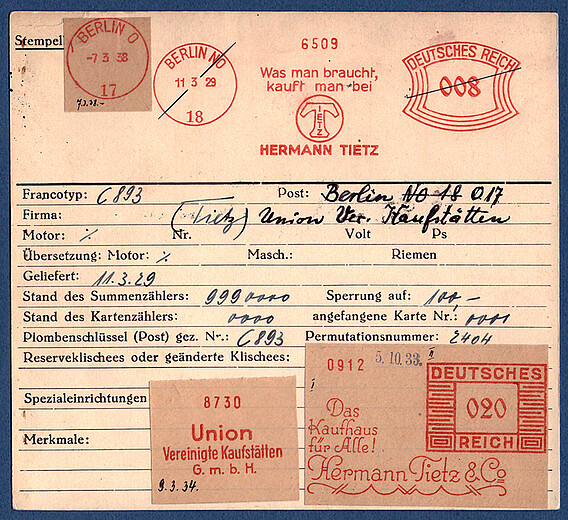 Stempel
BERLIN O
-7 3 38
17
7.3.38.-
BERLIN NO
11 3 29
18
6509
Was man braucht,
kauft man bei
TIETZ
HERMANN TIETZ
DEUTSCHES REICH
008
Francotyp: C 893 Post: Berlin NO 18 O 17
Firma: (Tietz) Union Ver. Kaufstätten
Motor: % Nr. Volt Ps
Übersetzung: Motor: % Masch.: Riemen
Geliefert: 11.3.29
Stand des Summenzählers: 9990000 Sperrung auf: 100,-
Stand des Kartenzählers: 0000 angefangene Karte Nr.: 0001
Plombenschlüssel (Post) gez. Nr.: C 893 Permutationsnummer: 2404
Reserveklischees oder geänderte Klischees:
Spezialeinrichtungen
Merkmale:
8730
Union
Vereinigte Kaufstätten
G. m. b. H.
9.3.34.
I
0912
5. 10. 33.
II
Das
Kaufhaus
für Alle!
Hermann Tietz & Co
DEUTSCHES
020
REICH